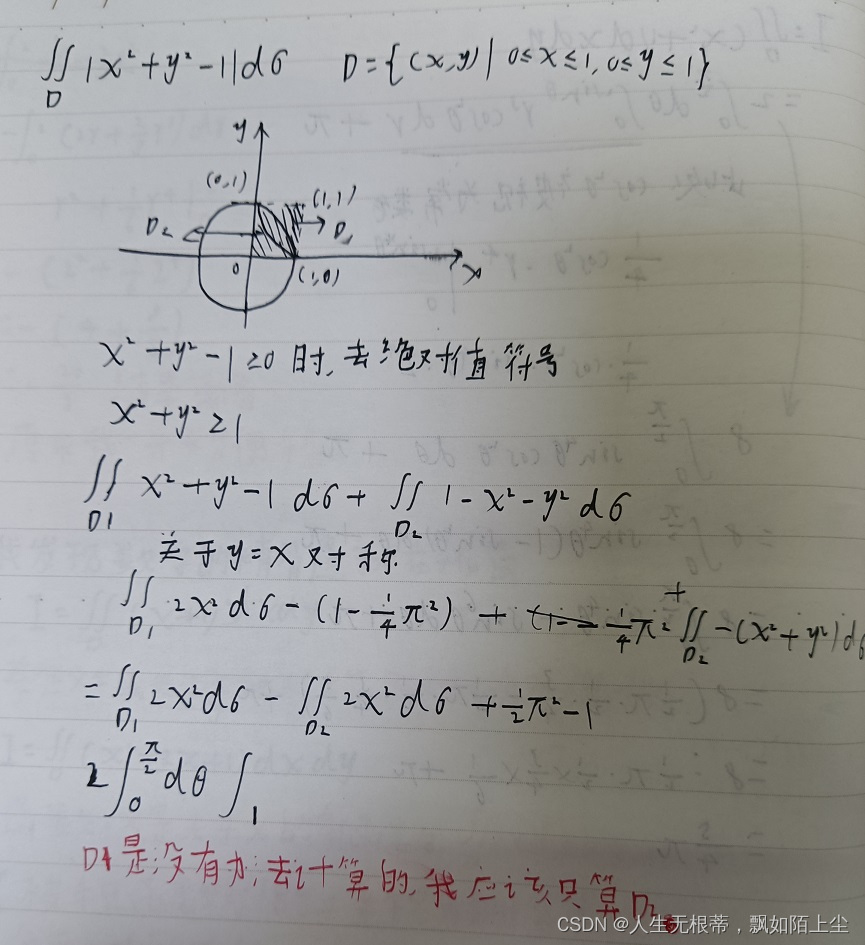 ∬_D |x²+y²-1|dσ D={(x,y)| 0≤x≤1,0≤y≤1}
y
(0,1) (1,1)
D₂ D₁
0 (1,0) x
x²+y²-1≥0时,去绝对值符号
x²+y²≥1
∬_D1 x²+y²-1 dσ+ ∬_D₂ 1-x²-y² dσ
关于y=x对称.
∬_D₁ 2x²dσ-(1-¼π²) + ¼π² + ∬_D₂ -(x²+y²)dσ
=∬_D₁ 2x²dσ - ∬_D₂ 2x²dσ +½π²-1
2∫₀^(π/2) dθ ∫₁
D1是没有办法计算的,我应该只算D₂。
CSDN @人生无根蒂，飘如陌上尘